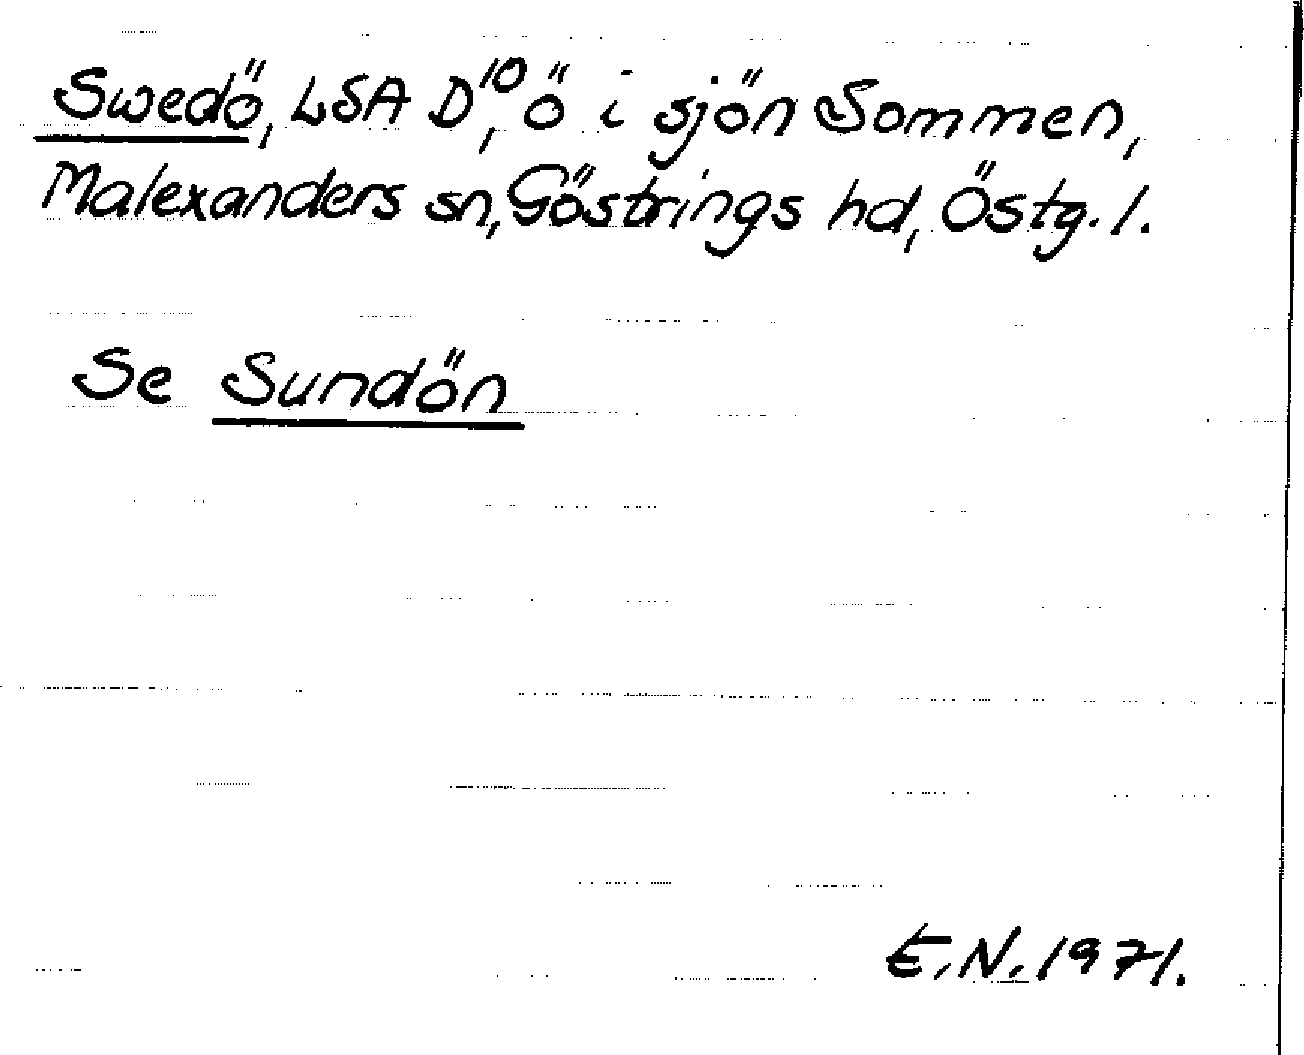 Swedö, LSA D¹⁰, ö i sjön Sommen,
Malexanders sn, Göstrings hd, Östg. l.
Se Sundön
E.N. 1971.